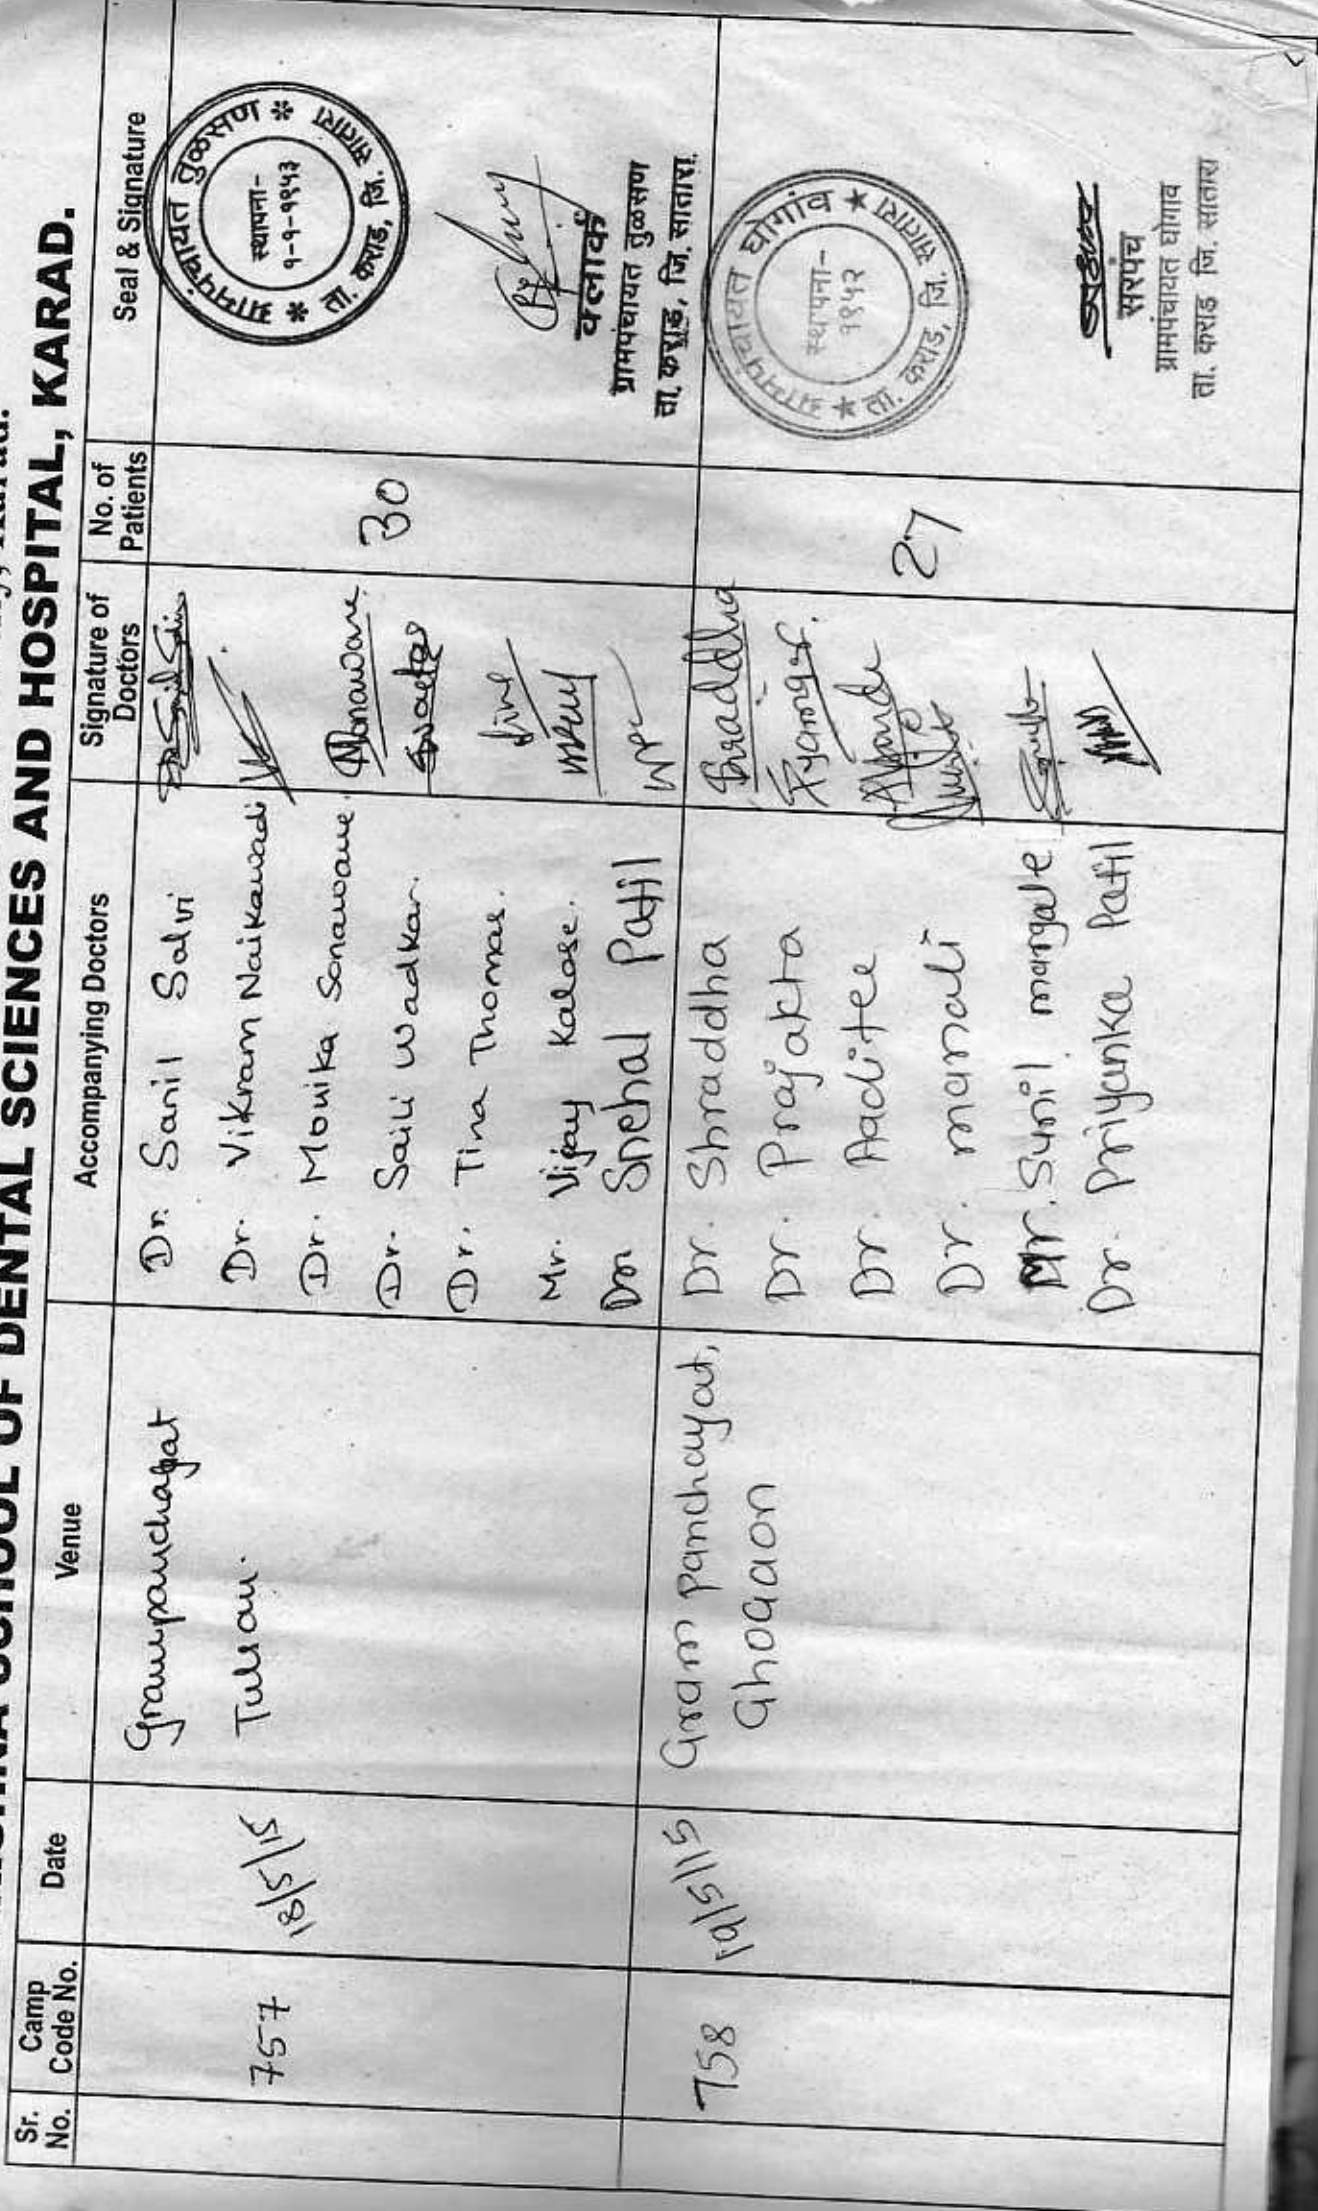 SCHOOL OF DENTAL SCIENCES AND HOSPITAL, KARAD.
Sr. No.
Camp Code No.
Date
Venue
Accompanying Doctors
Signature of Doctors
No. of Patients
Seal & Signature
757
18/5/15
Grampanchayat
Tulsan.
Dr. Sanil Salvi
Dr. Vikram Naikawadi
Dr. Monika Sonawane.
Dr. Saili Wadkar.
Dr. Tina Thomas.
Mr. Vijay Kalase.
Dr Snehal Patil
Sonawane
30
ग्रामपंचायत तुळसण
स्थापना-
१-१-१९५३
ता. कराड, जि. सातारा
क्लार्क
ग्रामपंचायत तुळसण
ता. कराड, जि. सातारा.
758
19/5/15
Gram Panchayat,
Ghogaon
Dr. Shraddha
Dr. Prajakta
Dr. Aaditee
Dr. manali
Mr. Sunil mangale
Dr. Priyanka Patil
Shraddha
27
ग्रामपंचायत घोगांव
स्थापना-
१९५२
ता. कराड, जि. सातारा
सरपंच
ग्रामपंचायत घोगांव
ता. कराड जि. सातारा